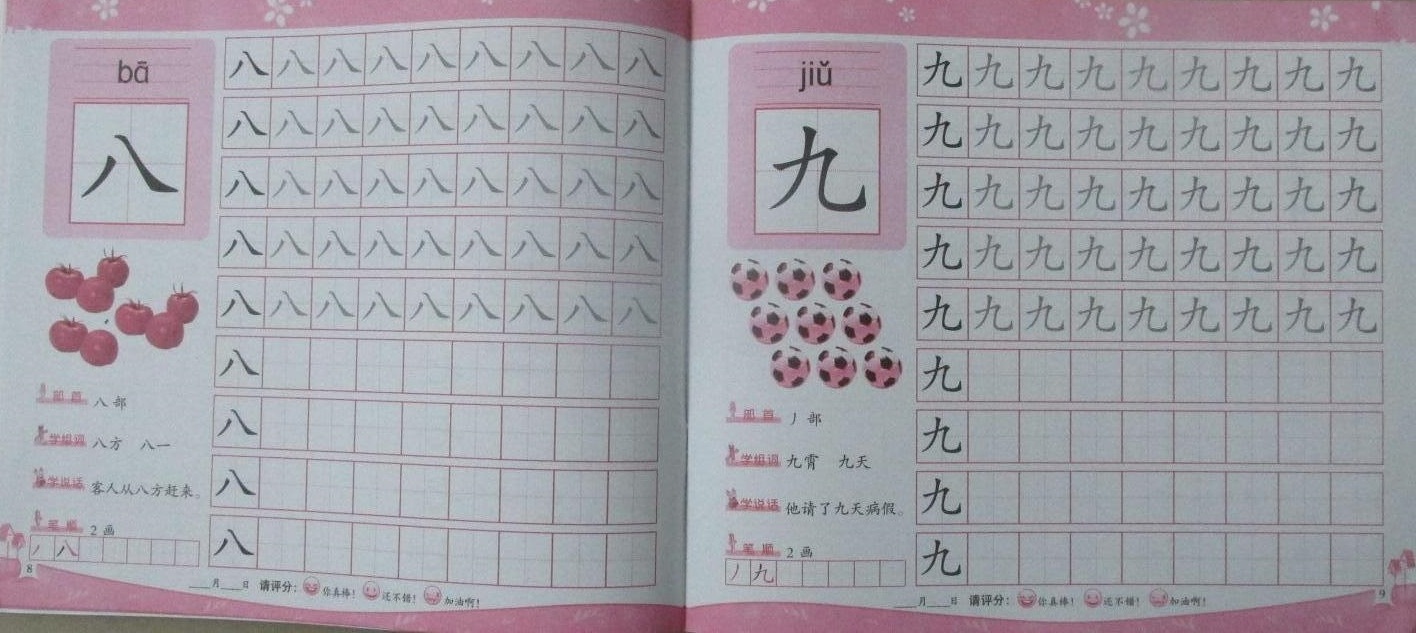 bā
八
八 八 八 八 八 八 八 八 八
八 八 八 八 八 八 八 八 八
八 八 八 八 八 八 八 八 八
八 八 八 八 八 八 八 八 八
八 八 八 八 八 八 八 八 八
八
八
八
八
部首 八部
学组词 八方 八一
学说话 客人从八方赶来。
笔顺 2画
丿 八
8
月 日 请评分: 你真棒! 还不错! 加油啊!
jiǔ
九
九 九 九 九 九 九 九 九 九
九 九 九 九 九 九 九 九 九
九 九 九 九 九 九 九 九 九
九 九 九 九 九 九 九 九 九
九 九 九 九 九 九 九 九 九
九
九
九
九
部首 丿部
学组词 九霄 九天
学说话 他请了九天病假。
笔顺 2画
丿 九
月 日 请评分: 你真棒! 还不错! 加油啊!
9